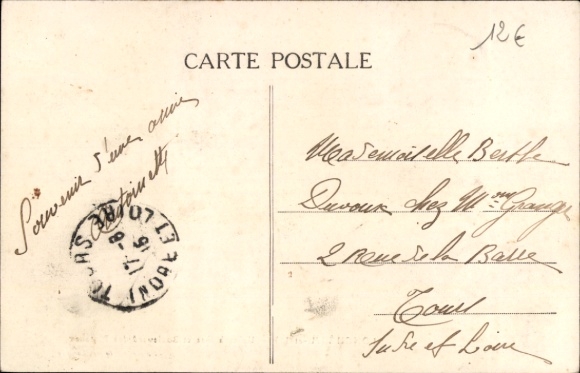 12€
CARTE POSTALE
Souvenir d'une amie
Antoinette
TOURS
INDRE ET LOIRE
17-8
15
Mademoiselle Berthe
Duvoux chez Mme Grange
2 Rue de la Barre
Tours
Indre et Loire